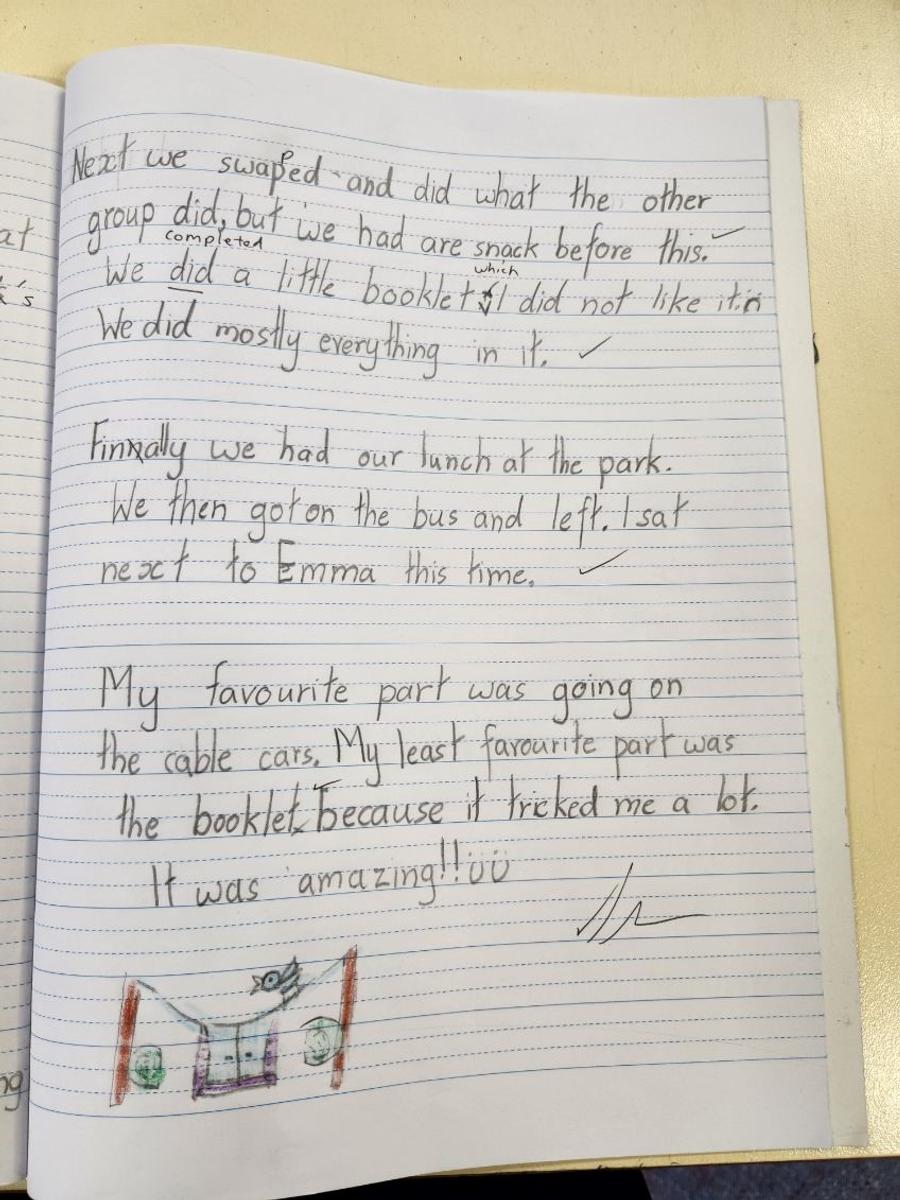 Next we swaped and did what the other
p
group did, but we had are snack before this.
completed
which
We did a little booklet I did not like it.
We did mostly everything in it.
Finnally we had our lunch at the park.
We then got on the bus and left. I sat
next to Emma this time.
My favourite part was going on
the cable cars. My least favourite part was
the booklet because it tricked me a lot.
It was amazing!!
at
's
ng